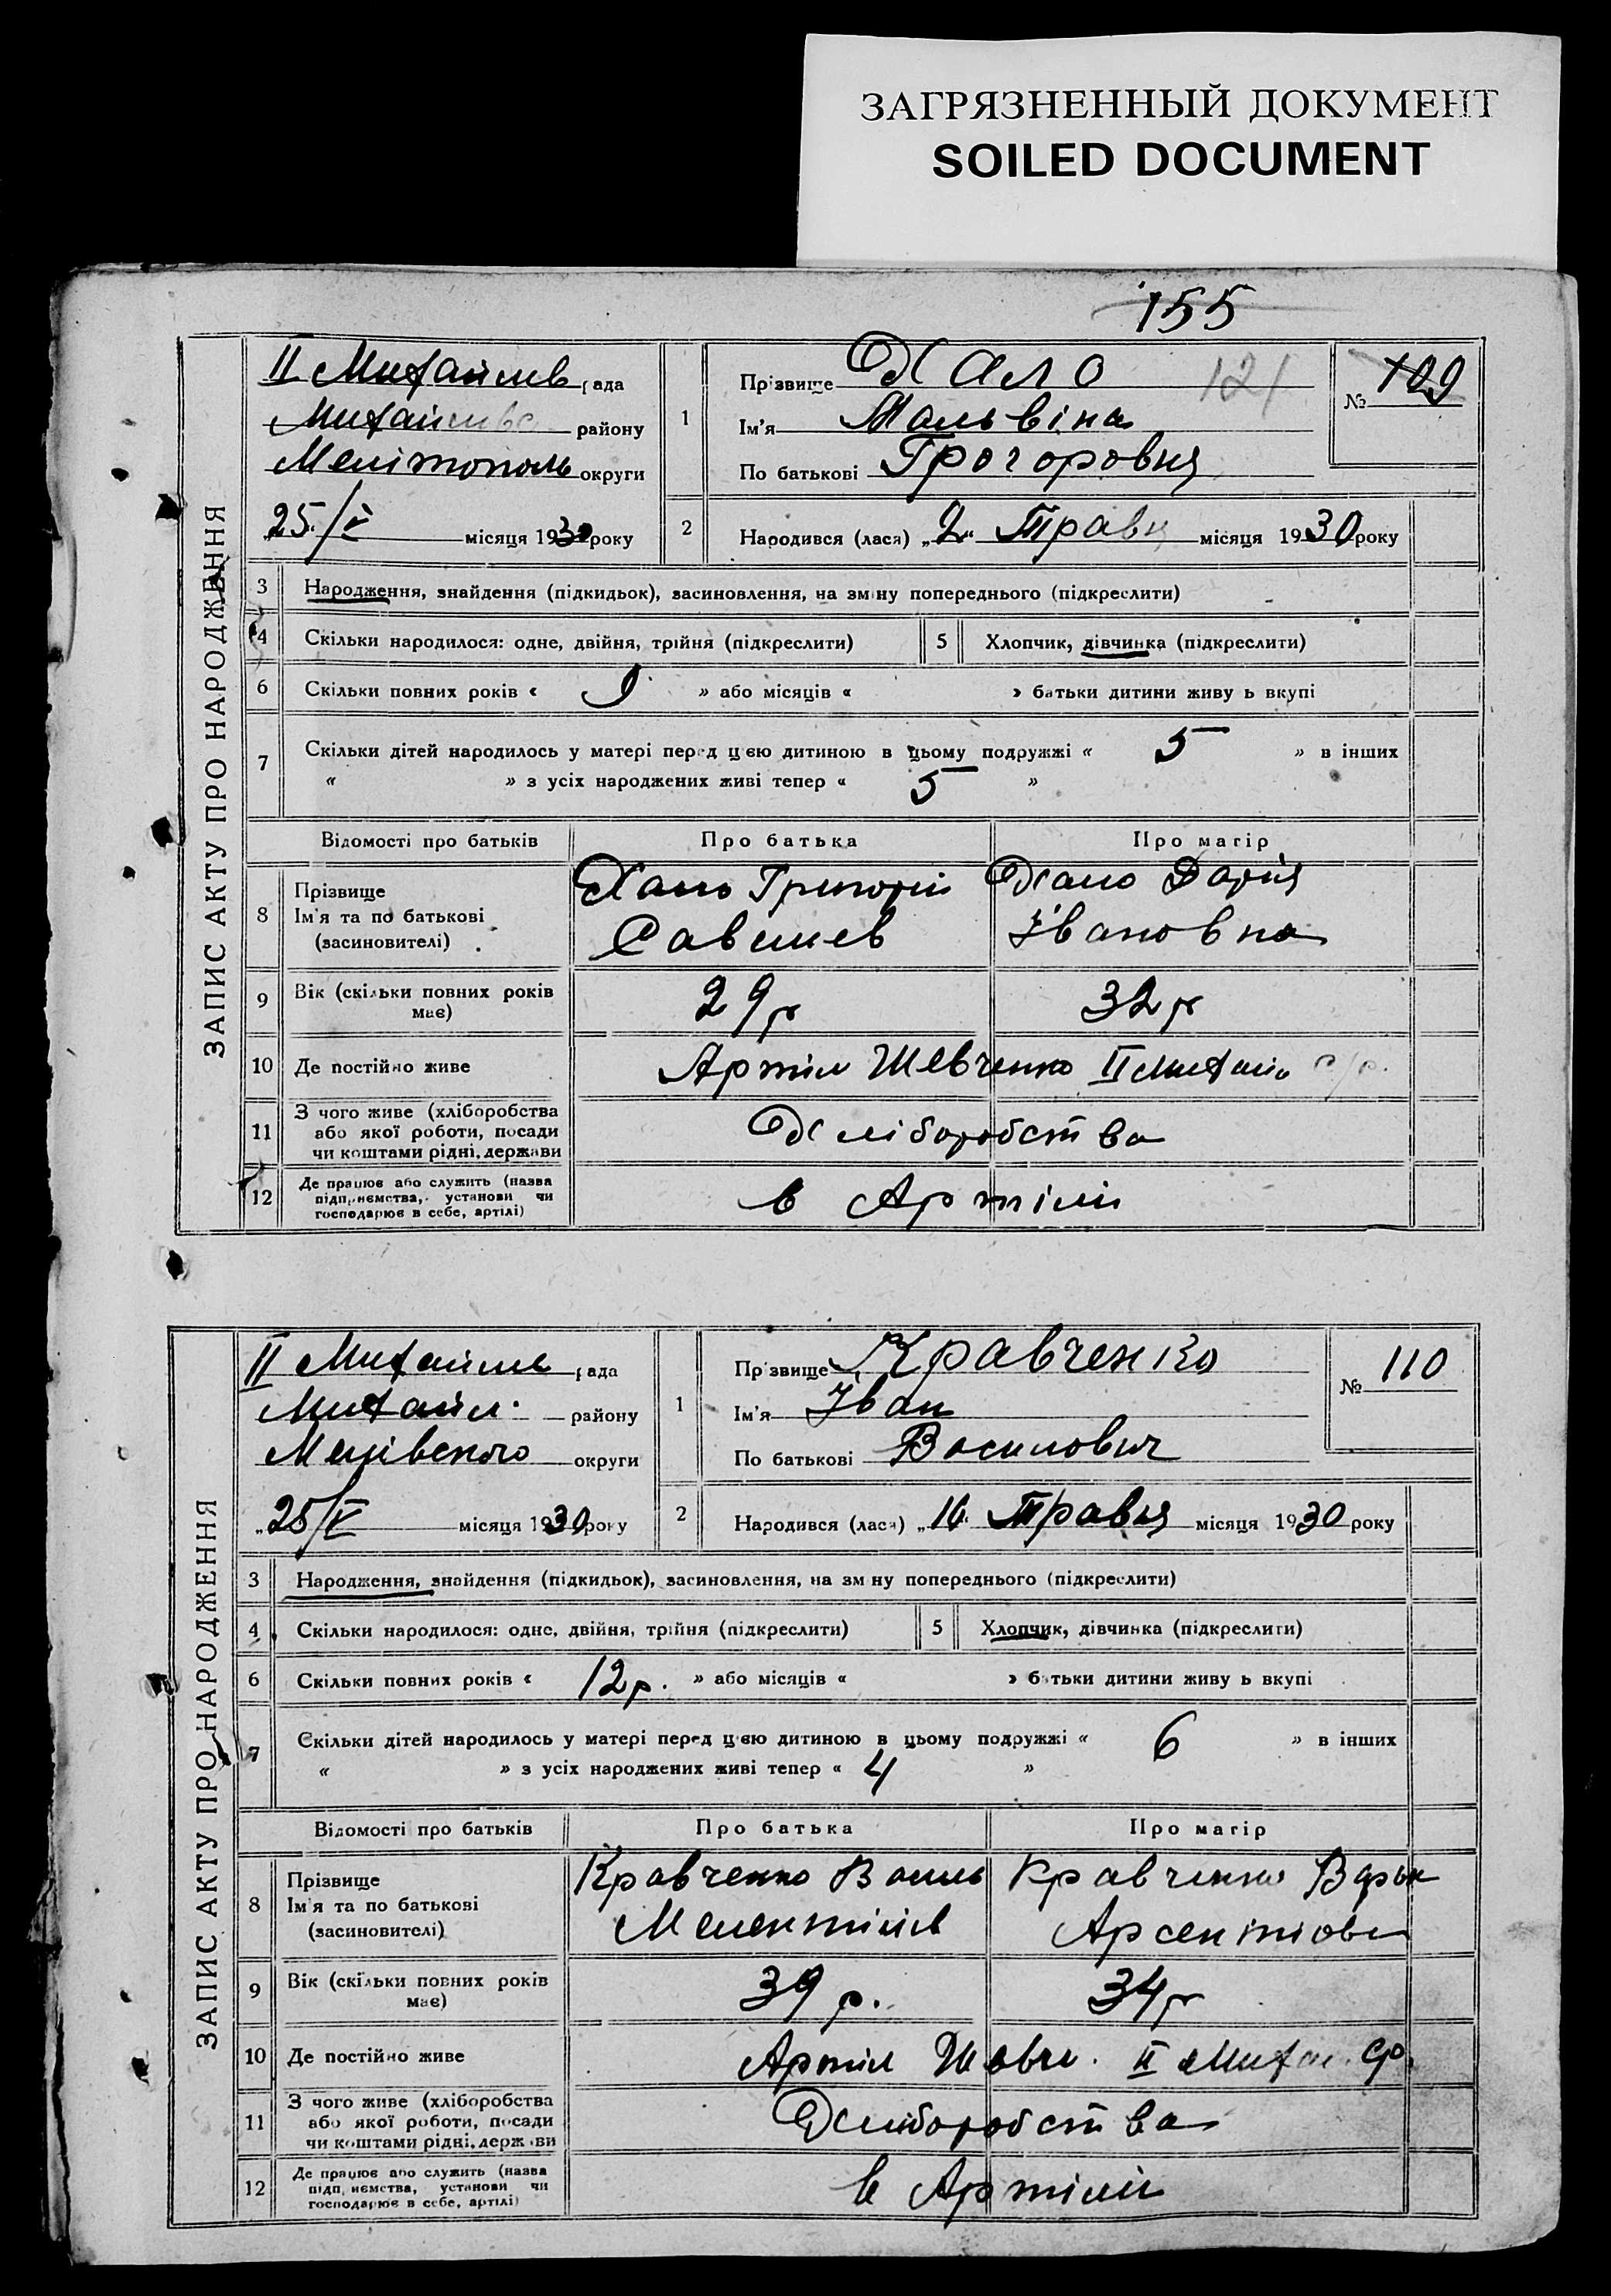 ЗАГРЯЗНЕННЫЙ ДОКУМЕНТ
SOILED DOCUMENT
155
ЗАПИС АКТУ ПРО НАРОДЖЕННЯ
II Михайлів рада
Михайлівс району
Мелітополь округи
25/V місяця 1930 року
1
Прізвище Хало 121
Ім'я Мальвіна
По батькові Грогоровня
№ 109
2 Народився (лася) „2“ Травн місяця 1930 року
3 Народження, знайдення (підкидьок), засиновлення, на зміну попереднього (підкреслити)
4 Скільки народилося: одне, двійня, трійня (підкреслити) 5 Хлопчик, дівчинка (підкреслити)
6 Скільки повних років « 9 » або місяців « » батьки дитини живуть вкупі
7 Скільки дітей народилось у матері перед цією дитиною в цьому подружжі « 5 » в інших
« » з усіх народжених живі тепер « 5 »
Відомості про батьків Про батька Про матір
8 Прізвище Ім'я та по батькові (засиновителі)
Хало Григорій Хало Дарія
Савелиев Івановна
9 Вік (скільки повних років має) 29 р 32 р
10 Де постійно живе Артіл Шевченко II Михайл с/р.
11 З чого живе (хліборобства або якої роботи, посади чи коштами рідні, держави Хліборобства
12 Де працює або служить (назва підприємства, установи чи господарює в себе, артілі) в Артілі
ЗАПИС АКТУ ПРО НАРОДЖЕННЯ
II Михайлів рада
Михайл. району
округи
„25/V місяця 1930 року
1
Прізвище Кравченко
Ім'я Іван
По батькові Василович
№ 110
2 Народився (лася) „16“ Травня місяця 1930 року
3 Народження, знайдення (підкидьок), засиновлення, на зміну попереднього (підкреслити)
4 Скільки народилося: одне, двійня, трійня (підкреслити) 5 Хлопчик, дівчинка (підкреслити)
6 Скільки повних років « 12 р. » або місяців « » батьки дитини живуть вкупі
7 Скільки дітей народилось у матері перед цією дитиною в цьому подружжі « 6 » в інших
« » з усіх народжених живі тепер « 4 »
Відомості про батьків Про батька Про матір
8 Прізвище Ім'я та по батькові (засиновителі)
Кравченко Василь Кравченко
Мелентіів Арсентіовн
9 Вік (скільки повних років має) 39 р. 34 р
10 Де постійно живе Артіл Шевч. II Михай. ср.
11 З чого живе (хліборобства або якої роботи, посади чи коштами рідні, держави Хліборобства
12 Де працює або служить (назва підприємства, установи чи господарює в себе, артілі) в Артілі